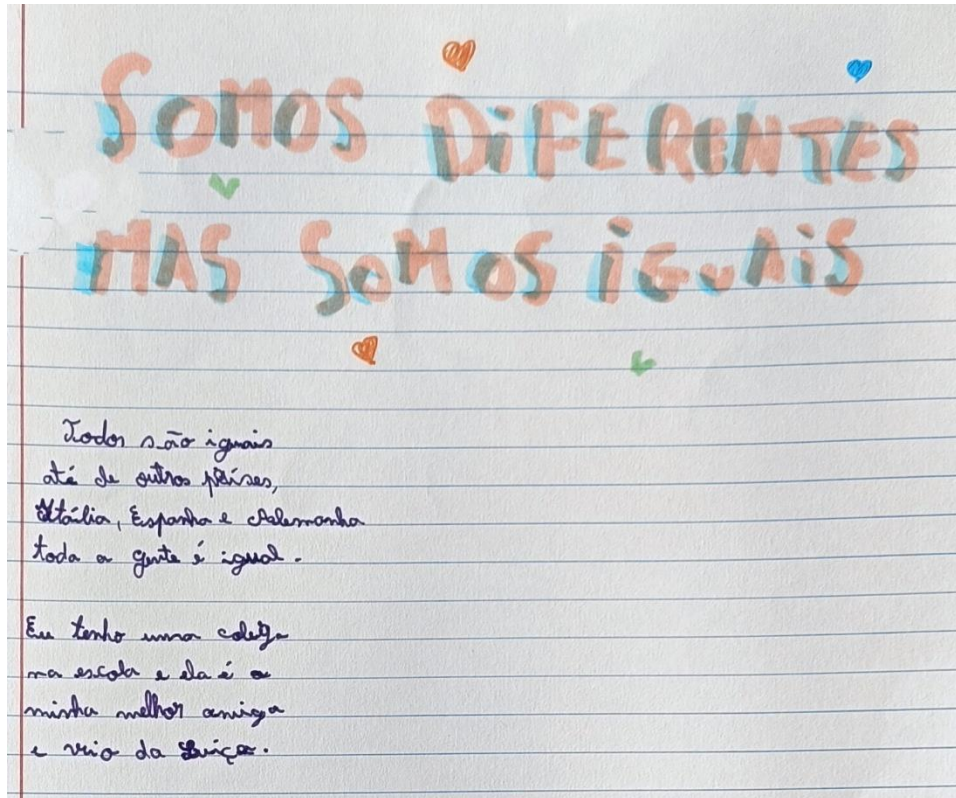 SOMOS DiFERENTES
MAS SOMOS iGUAiS
Todos são iguais
até de outros países,
Itália, Espanha e Alemanha
toda a gente é igual.
Eu tenho uma colega
na escola e ela é a
minha melhor amiga
e veio da Suiça.